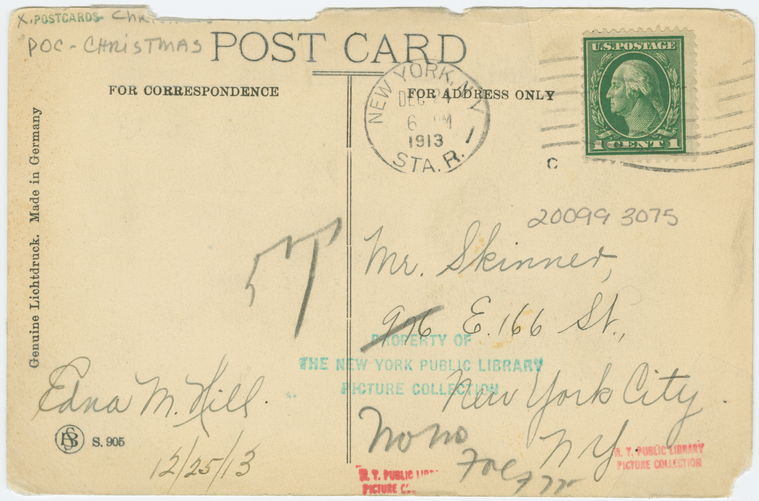 X. POSTCARDS - CHR
POC - CHRISTMAS
POST CARD
FOR CORRESPONDENCE
FOR ADDRESS ONLY
NEW YORK, N.Y.
DEC 24
6 PM
1913
STA. R.
U.S. POSTAGE
1 CENT 1
C
Genuine Lichtdruck. Made in Germany
20099 3075
Mr. Skinner,
976 E. 166 St.,
PROPERTY OF
THE NEW YORK PUBLIC LIBRARY
PICTURE COLLECTION
New York City.
N.Y.
Edna M. Hill.
S. 905
12/25/13
No no
N. Y. PUBLIC LIBRARY
PICTURE COLLECTION
N. Y. PUBLIC LIBR
PICTURE C